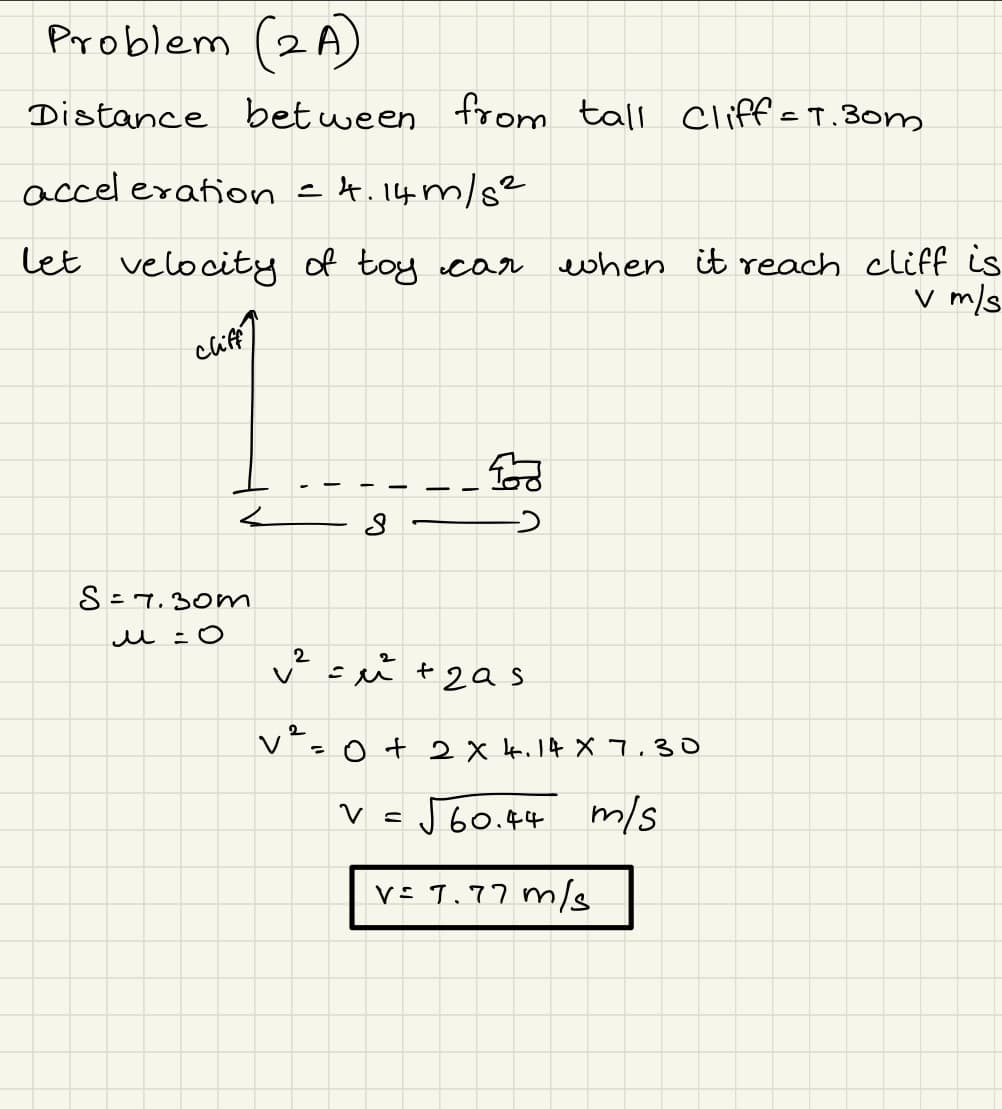 Problem (2A)
Distance between from tall cliff = 7.30m
acceleration = 4.14m/s²
Let velocity of toy car when it reach cliff is
v m/s
cliff
S
S = 7.30m
u = 0
v² = u² + 2as
v² = 0 + 2 × 4.14 × 7.30
v = √60.44 m/s
v = 7.77 m/s